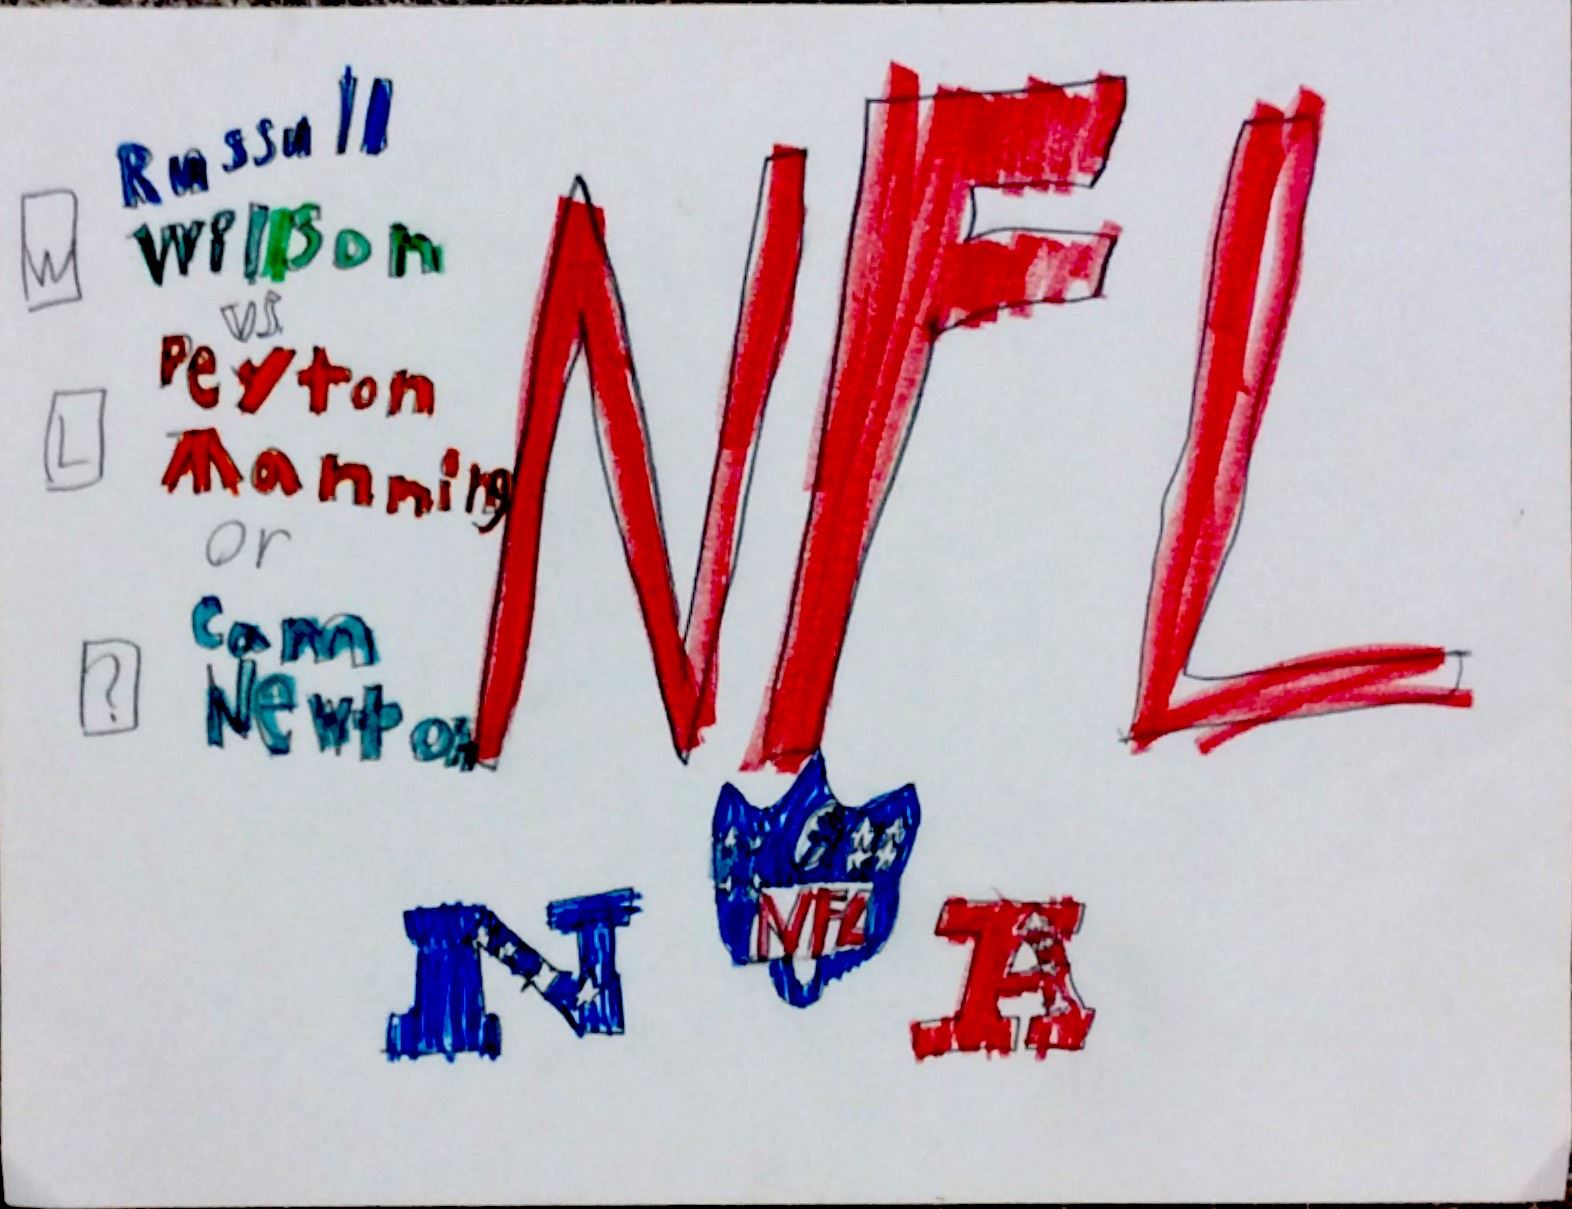 Russull
WillSon
vs
W
Peyton
Manning
L
or
Cam
Newton
?
NFL
NFL
N
A